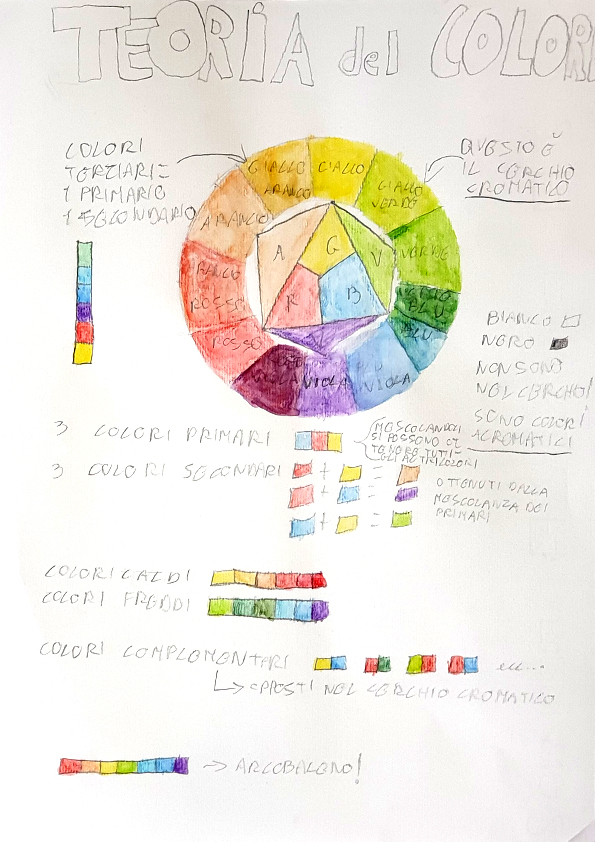 TEORIA del COLORI
COLORI
TERZIARI=
1 PRIMARIO
1 SECONDARIO
QUESTO È
IL CERCHIO
CROMATICO
GIALLO
ARANCIO
GIALLO
GIALLO
VERDE
ARANCIO
VERDE
ROSSO
BLU
ROSSO
BLU
VIOLA
VIOLA
VIOLA
A
G
V
R
B
BIANCO
NERO
NON SONO
NEL CERCHIO!
SONO COLORI
ACROMATICI
3 COLORI PRIMARI
MESCOLANDOLI
SI POSSONO OT
TENERE TUTTI
GLI ALTRI COLORI
3 COLORI SECONDARI
+ =
+ =
+ =
OTTENUTI DALLA
MESCOLANZA DEI
PRIMARI
COLORI CALDI
COLORI FREDDI
COLORI COMPLEMENTARI
ecc...
OPPOSTI NEL CERCHIO CROMATICO
ARCOBALENO!